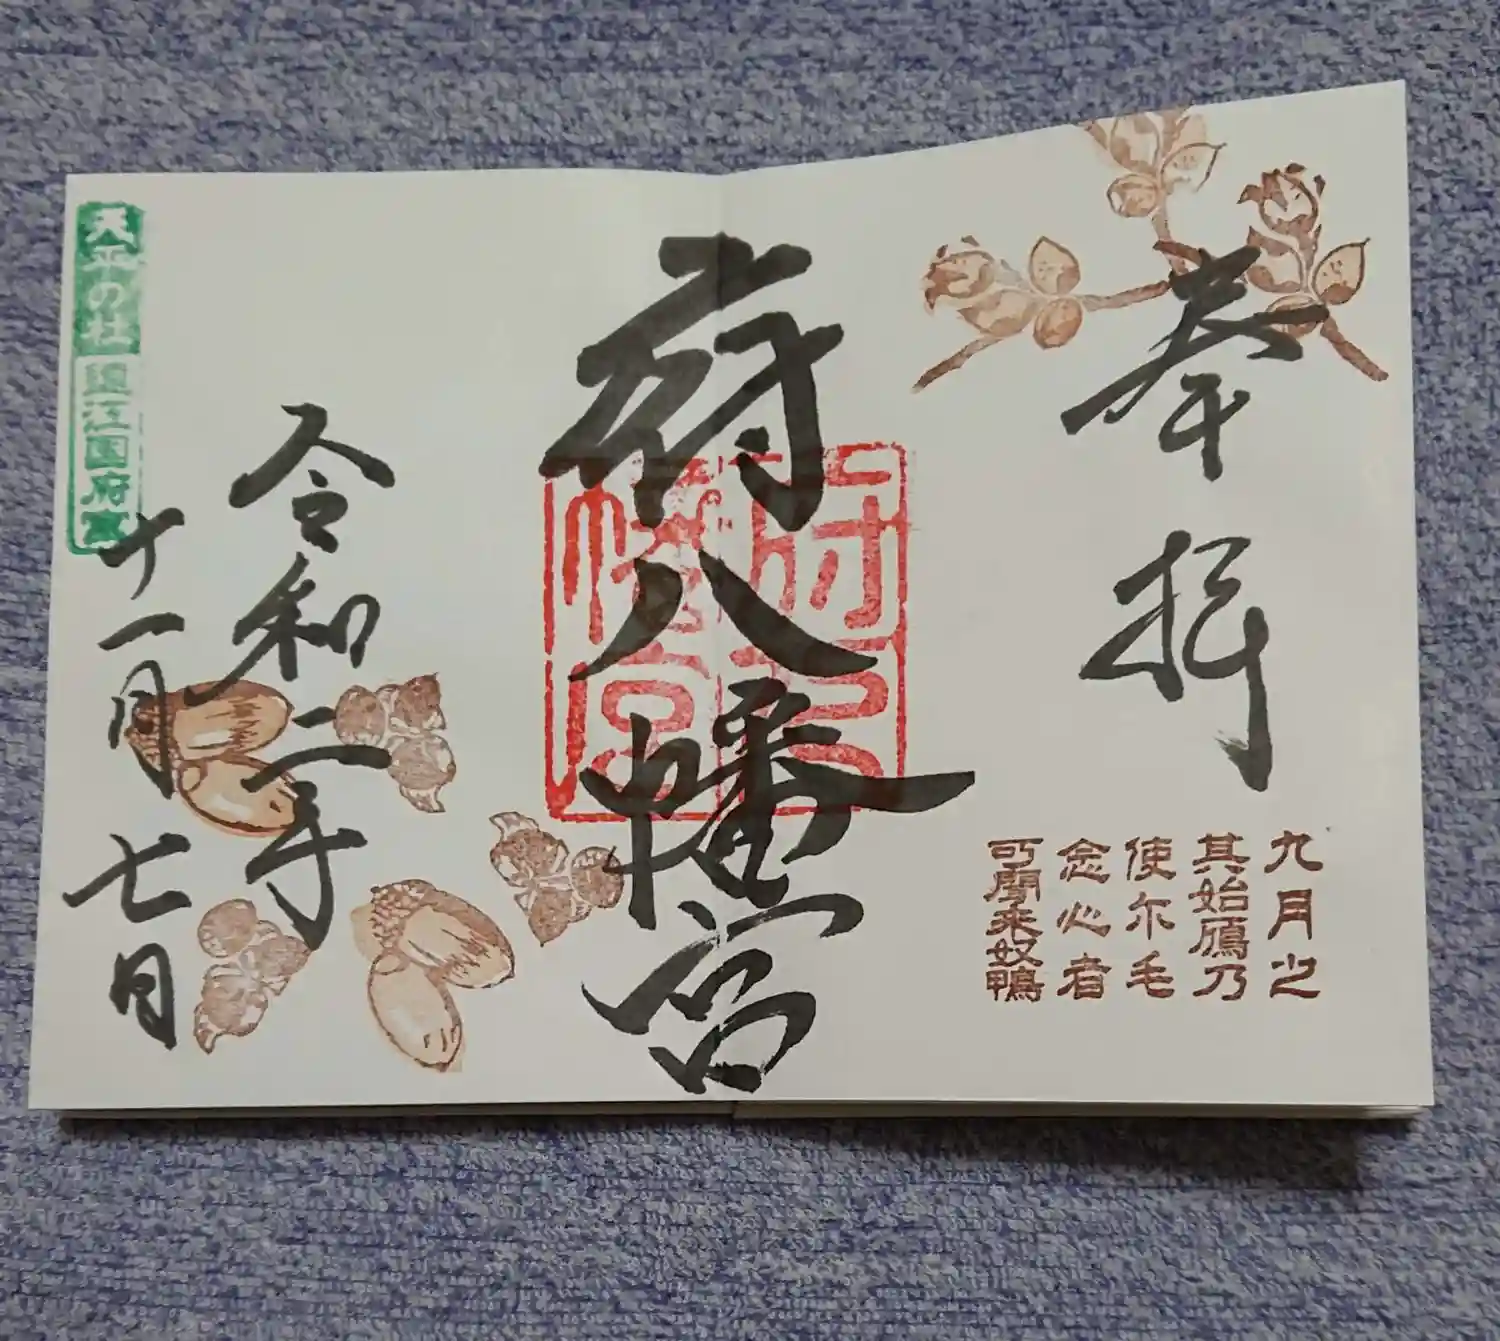 奉拝
九月之
其始鴈乃
使尓毛
念心者
可聞来奴鴨
府八幡宮
府八
幡宮
令和二年
十一月七日
天平の杜 遠江国府